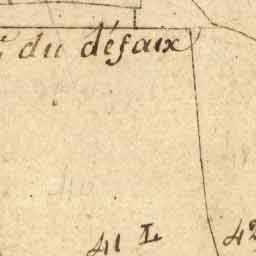 du défaix
41 L 42